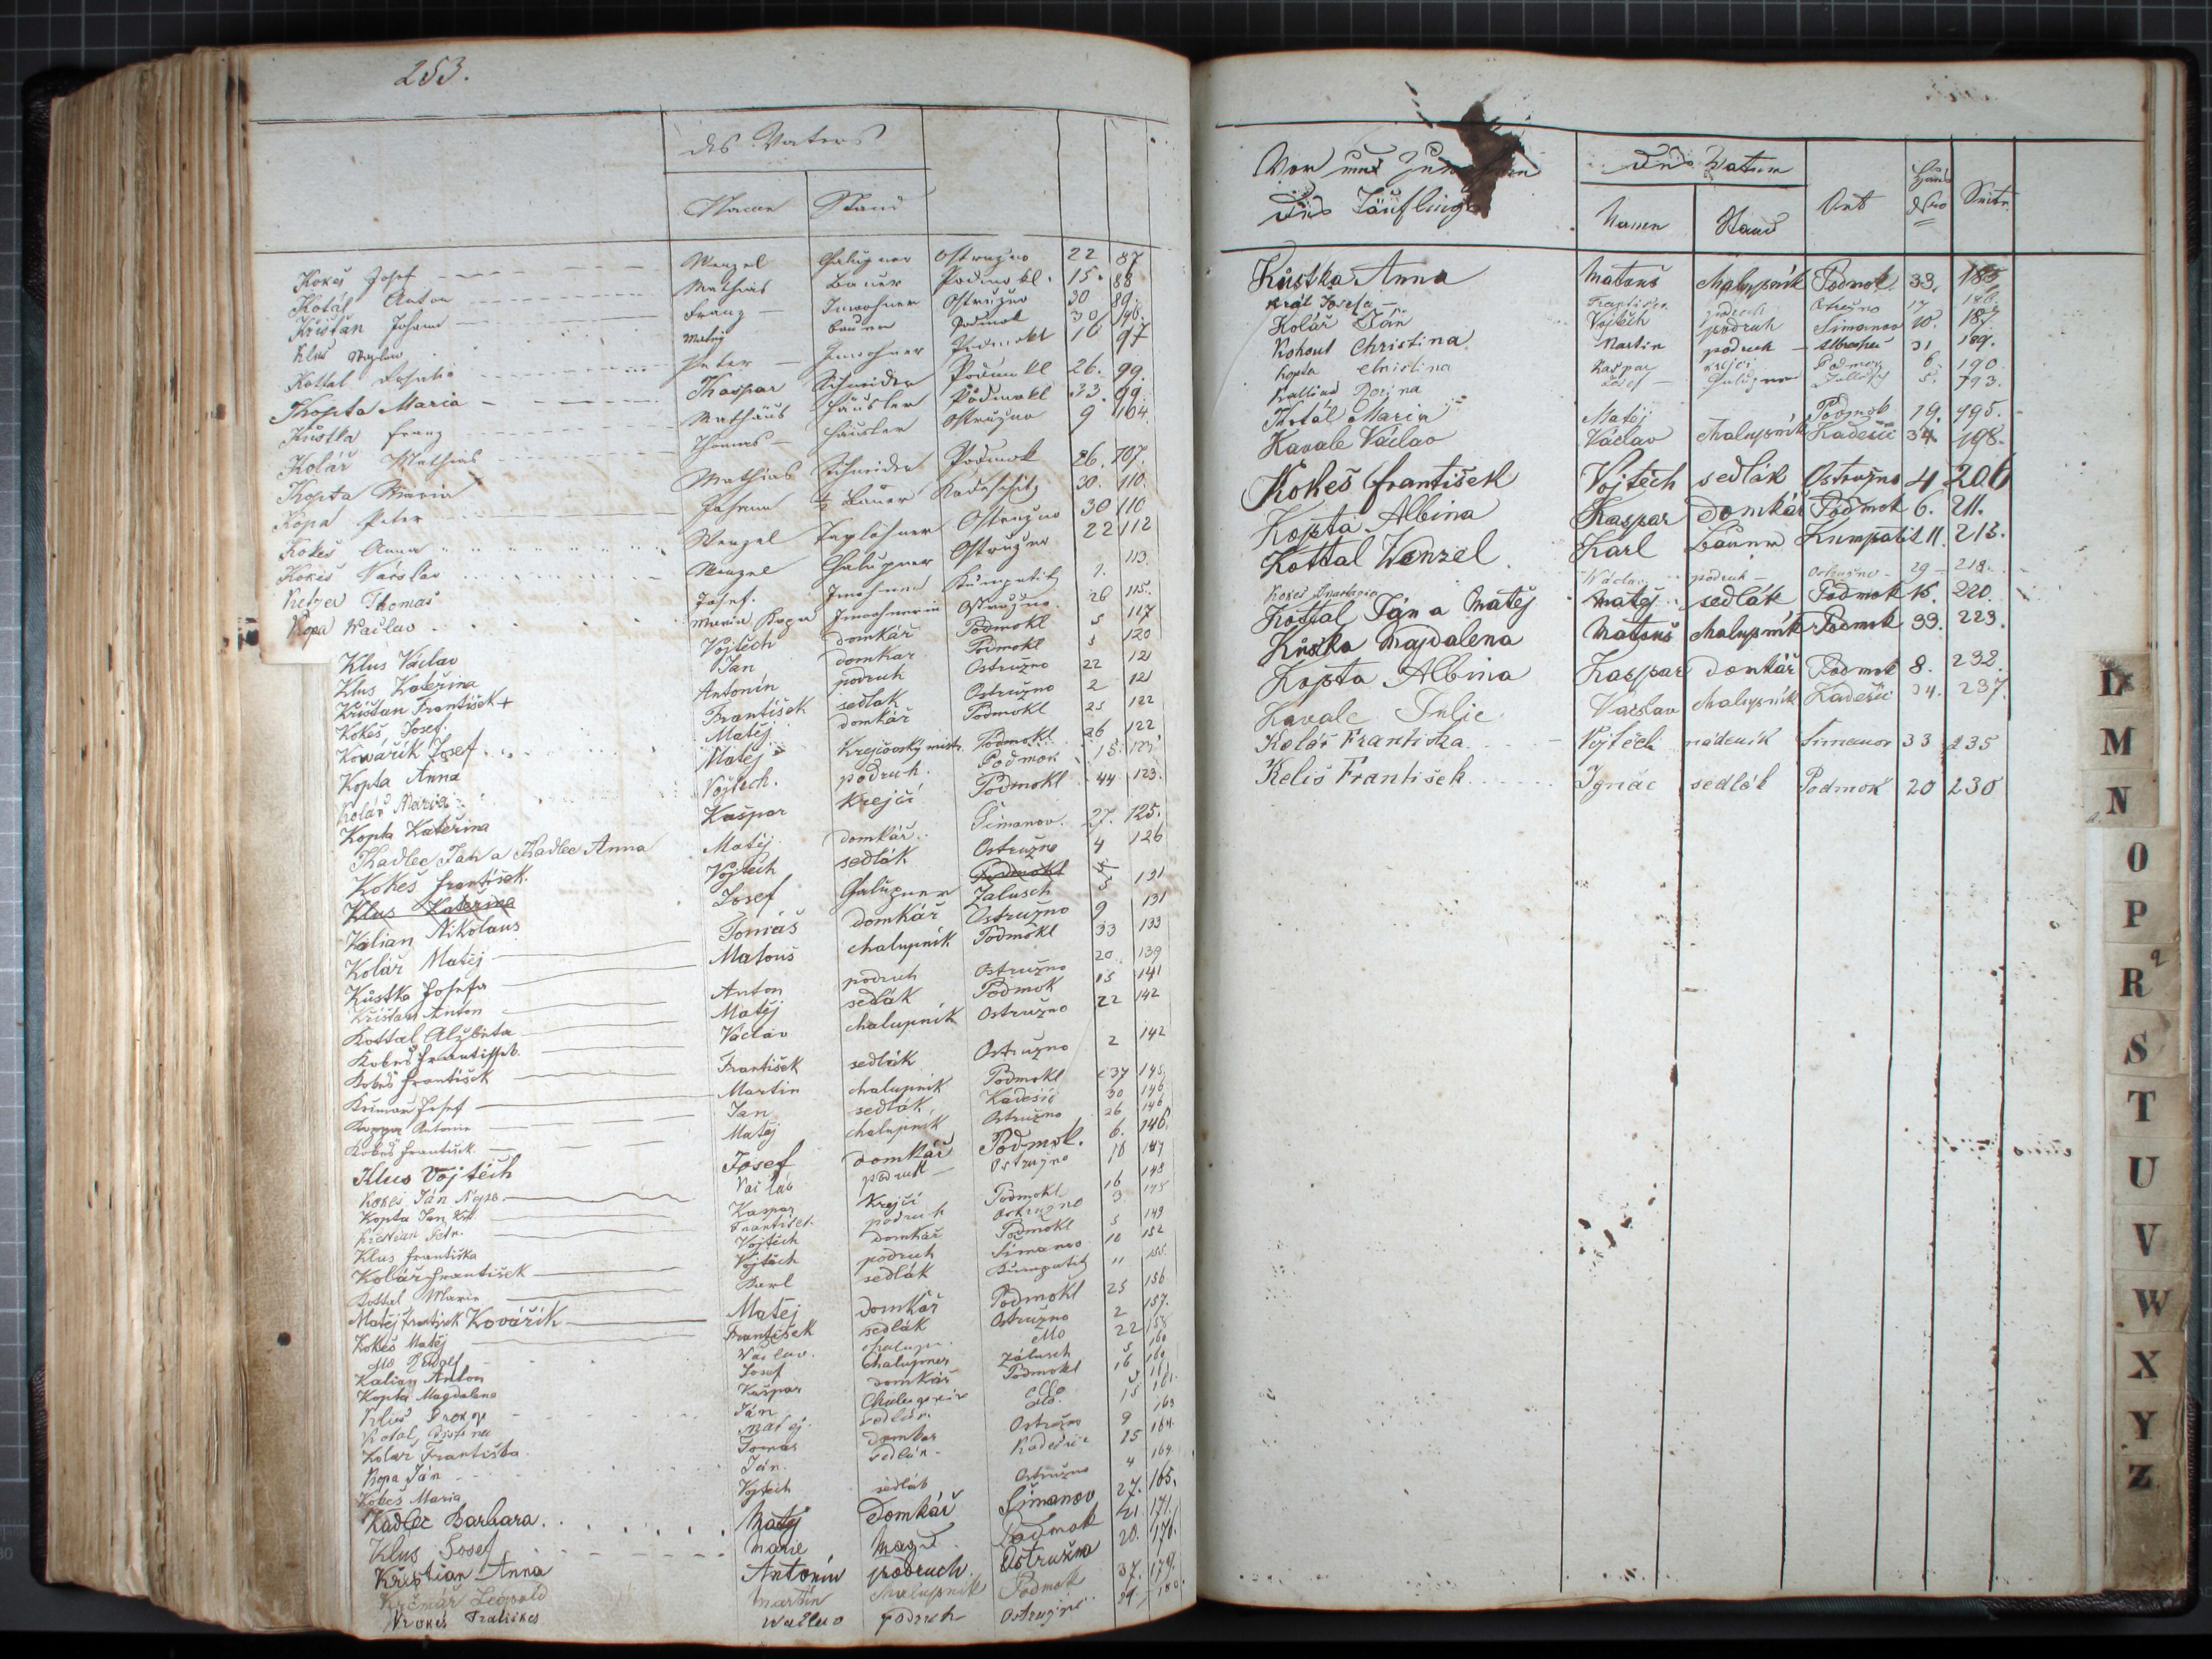 253.
des Vaters
Namen Stand
Kokeš Josef Wenzel Chalupner Ostružno 22 87
Kotál Anton Mathias Bauer Podmokl. 15. 88
Kristan Johann Franz Inwohner Ostružno 30 89.
Klus Matěj Bauer Podmok 30 96.
Kottal Peter Inwohner Podmokl 16 97
Kopta Maria Kaspar Schneider Podmokl 26. 99.
Kůstka Franz Mathäus Häusler Podmokl 33. 99.
Kolář Mathias Thomas Häusler Ostružno 9 104
Kopta Maria Mathias Schneider Podmok 26. 107.
Kopa Peter Johann ½ Bauer Kadeschitz 30. 110.
Kokeš Anna Wenzel Taglöhner Ostružno 30 110
Kokeš Václav Wenzel Chalupner Ostružno 22 112
Thomas Josef. Inwohner Kumpatitz 1. 113.
Kopa Waclav Maria Kopa Inwohnerin Ostružno. 26 115.
Klus Václav Vojtěch domkář Podmokl 5 117
Klus Kateřina Jan domkar Podmokl 5 120
Kristan František + Antonín podruh Ostružno 22 121
Kokeš Josef. František sedlak Ostružno 2 121
Kowařík Josef Matěj domkář Podmokl 25 122
Kopta Anna Matěj Krejčovský mistr. Podmokl. 26 122
Kolář Maria Vojtěch. podruh. Podmok 15 123
Kopta Kateřina Kašpar Krejčí Podmokl 44 123.
Kadlec Jan a Kadlec Anna Matěj domkář Šimanov. 27. 125.
Kokeš František. Vojtěch sedlák Ostružno 4 126
Klus Katerina Podmokl
Kalian Nikolaus Josef Chalupner Zalusch 5 131
Kolář Matěj Tomáš domkář Ostružno 9 131
Kůstka Josefa Matouš chalupník Podmokl 33 133
Kristan Anton Anton podruh Ostružno 20. 139
Kottal Alžběta Matěj sedlák Podmok 15 141
Kokeš František. Václav chalupník Ostružno 22 142
Kokeš František František sedlák Ostružno 2 142
Krčmar Josef Martin chalupník Podmokl 37 145
Koppa Antonie Jan sedlák Kadešic 30 146
Kokeš František Matěj chalupník Ostružno 26 146
Klus Vojtěch Josef domkář Podmok. 6. 146.
Kokeš Ján Nepo. Václav podruh Ostružno 18 147
Kopta Jan Kř. Kaspar Krejčí Podmokl 16 148
Kristian Petr. František podruh Ostružno 3 148
Klus Františka Vojtěch domkář Podmokl 5 149
Kolář František Vojtěch podruh Simanov 10 152
Kottal Marie Karl sedlák Kumpatitz 11 155.
Matěj František Kovářík Matěj domkář Podmokl 25 156
Kokeš Matěj František sedlák Ostružno 2 157.
dto Rudolf Václav. chalup. dto 22 158
Kalian Anton Josef Chalupner Zalusch 5 160
Kopta Magdalena Kašpar domkář Podmokl 16 160
Klus Prokop Ján Chalupnik dto 5 161
Kotal, Matěj. sedlák dto. 15 161.
Kolář Františka Tomas domkar Ostružno 9 163
Kopa Ján Ján. sedlák Kadešic 25 164.
Kokeš Maria Vojtech sedlák Ostružno 4 164.
Kadlec Barbara. Matěj Domkář Šimanov 27. 165.
Klus Josef Marie Magd. Podmok 21 171.
Kristian Anna Antonín podruch Ostružno 20. 176.
Krčmář Leopold Martin chalupník Podmok 37. 179.
Kokeš Wacluv Podruh Ostružno 29 180.
Vor und Zunamen
des Täuflings
des Vaters
Namen Stand
Ort
Haus Nro
Seite
Kůstka Anna Matouš chalupník Podmok. 33. 185
Král Josefa Frantisek podruh Ostružno 17 186.
Kolář Ján Vojtěch podruh Simanov 10. 187
Kohout Christina Martin podruh 31 189.
Kopta Christina Kaspar krejci Podmok 6. 190.
Rosina Josef Chalupner 5. 193.
Kotál Maria Matěj Podmok 19. 195.
Kavale Václav Václav chalupník Kadešic 34. 198.
Kokeš František Vojtěch sedlák Ostružno 4 206
Kopta Albina Kaspar domkář Podmok 6. 211.
Kottal Wenzel Karl Bauer Kumpatit 11. 213.
Kokeš Anastasia Václav podruh Ostružno 29 218.
Kottal Ján a Matěj Matěj sedlák Podmok 15. 220.
Kůstka Majdalena Matouš chalupník Podmok 33. 223.
Kopta Albina Kaspar domkář Podmok 8. 232.
Kavale Julie Vaclav chalupník Kadešic 34. 237.
Kolář Františka Vojtěch nádeník Simanov 33 235
Keliš František Ignác sedlák Podmok 20 230
L
M
N
O
P
Q
R
S
T
U
V
W
X
Y
Z